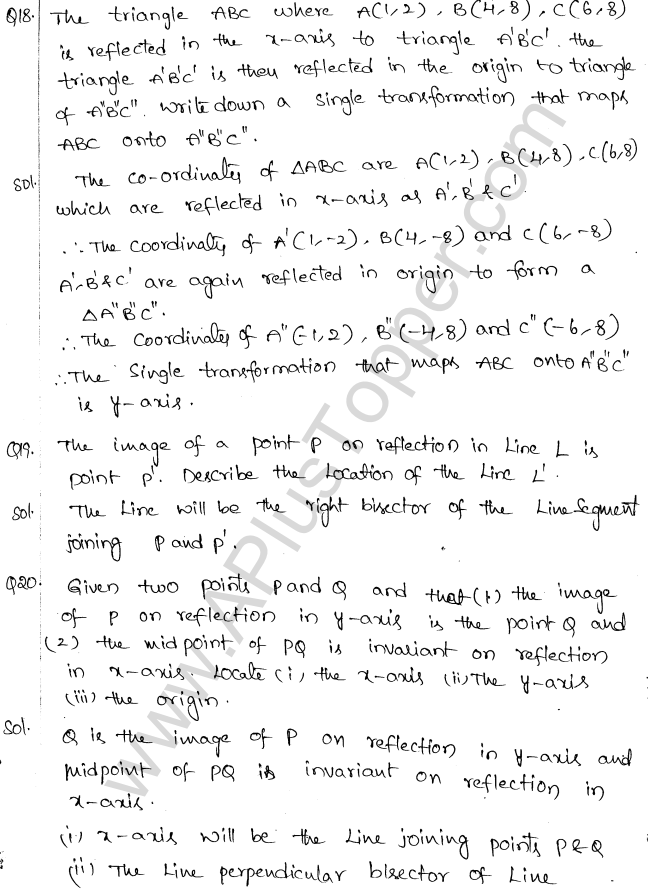 Q18. The triangle ABC where A(1,2), B(4,8), C(6,8)
is reflected in the x-axis to triangle A'B'C'. the
triangle A'B'C' is then reflected in the origin to triangle
of A"B"C". Write down a single transformation that maps
ABC onto A"B"C".
Sol. The co-ordinates of △ABC are A(1,2), B(4,8), C(6,8)
which are reflected in x-axis as A', B' & C'
∴ The coordinates of A'(1,-2), B(4,-8) and C(6,-8)
A', B' & C' are again reflected in origin to form a
△A"B"C".
∴ The coordinates of A"(-1,2), B"(-4,8) and C"(-6,8)
∴ The Single transformation that maps ABC onto A"B"C"
is y-axis.
Q19. The image of a point P on reflection in Line L is
point P'. Describe the Location of the Line L'.
Sol. The Line will be the right bisector of the Line Segment
joining P and P'.
Q20. Given two points P and Q and that (1) the image
of P on reflection in y-axis is the point Q and
(2) the midpoint of PQ is invariant on reflection
in x-axis. Locate (i) the x-axis (ii) The y-axis
(iii) the origin.
Sol. Q is the image of P on reflection in y-axis and
midpoint of PQ is invariant on reflection in
x-axis.
(i) x-axis will be the Line joining points P & Q
(ii) The Line perpendicular bisector of Line
www.APlusTopper.com